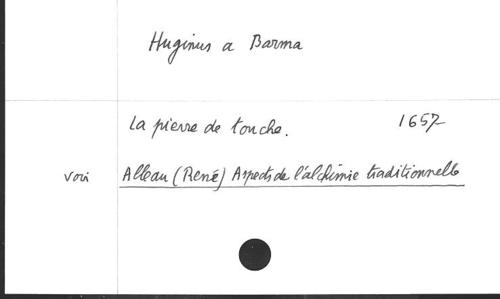 Huginus a Barma
La pierre de touche. 1657
voir Alleau (René) Aspects de l'alchimie traditionnelle